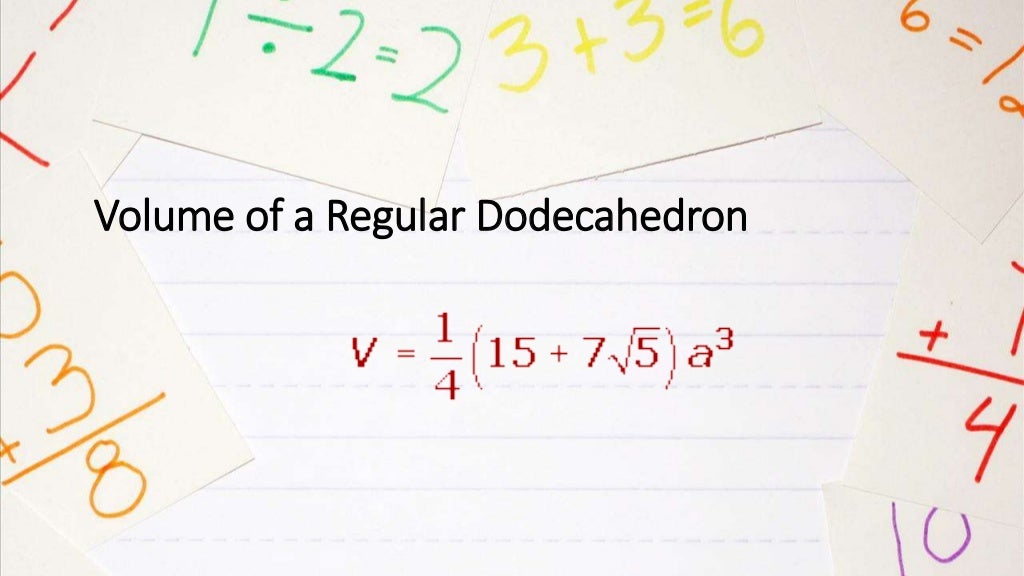 ÷2=2
3+3=6
6=12
Volume of a Regular Dodecahedron
V = 1/4 (15 + 7√5) a³
3
+
8
+
4
10